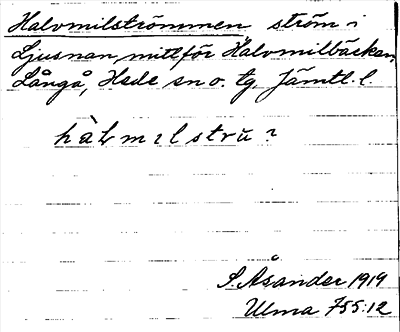 Halvmilströmmen ström i
Ljusnan mittför Halvmilbäcken,
Långå, Hede sn o. tg. Jämtl. l.
hàLmɪlstrɯ ?
S. Åsander 1919
Ulma 755:12